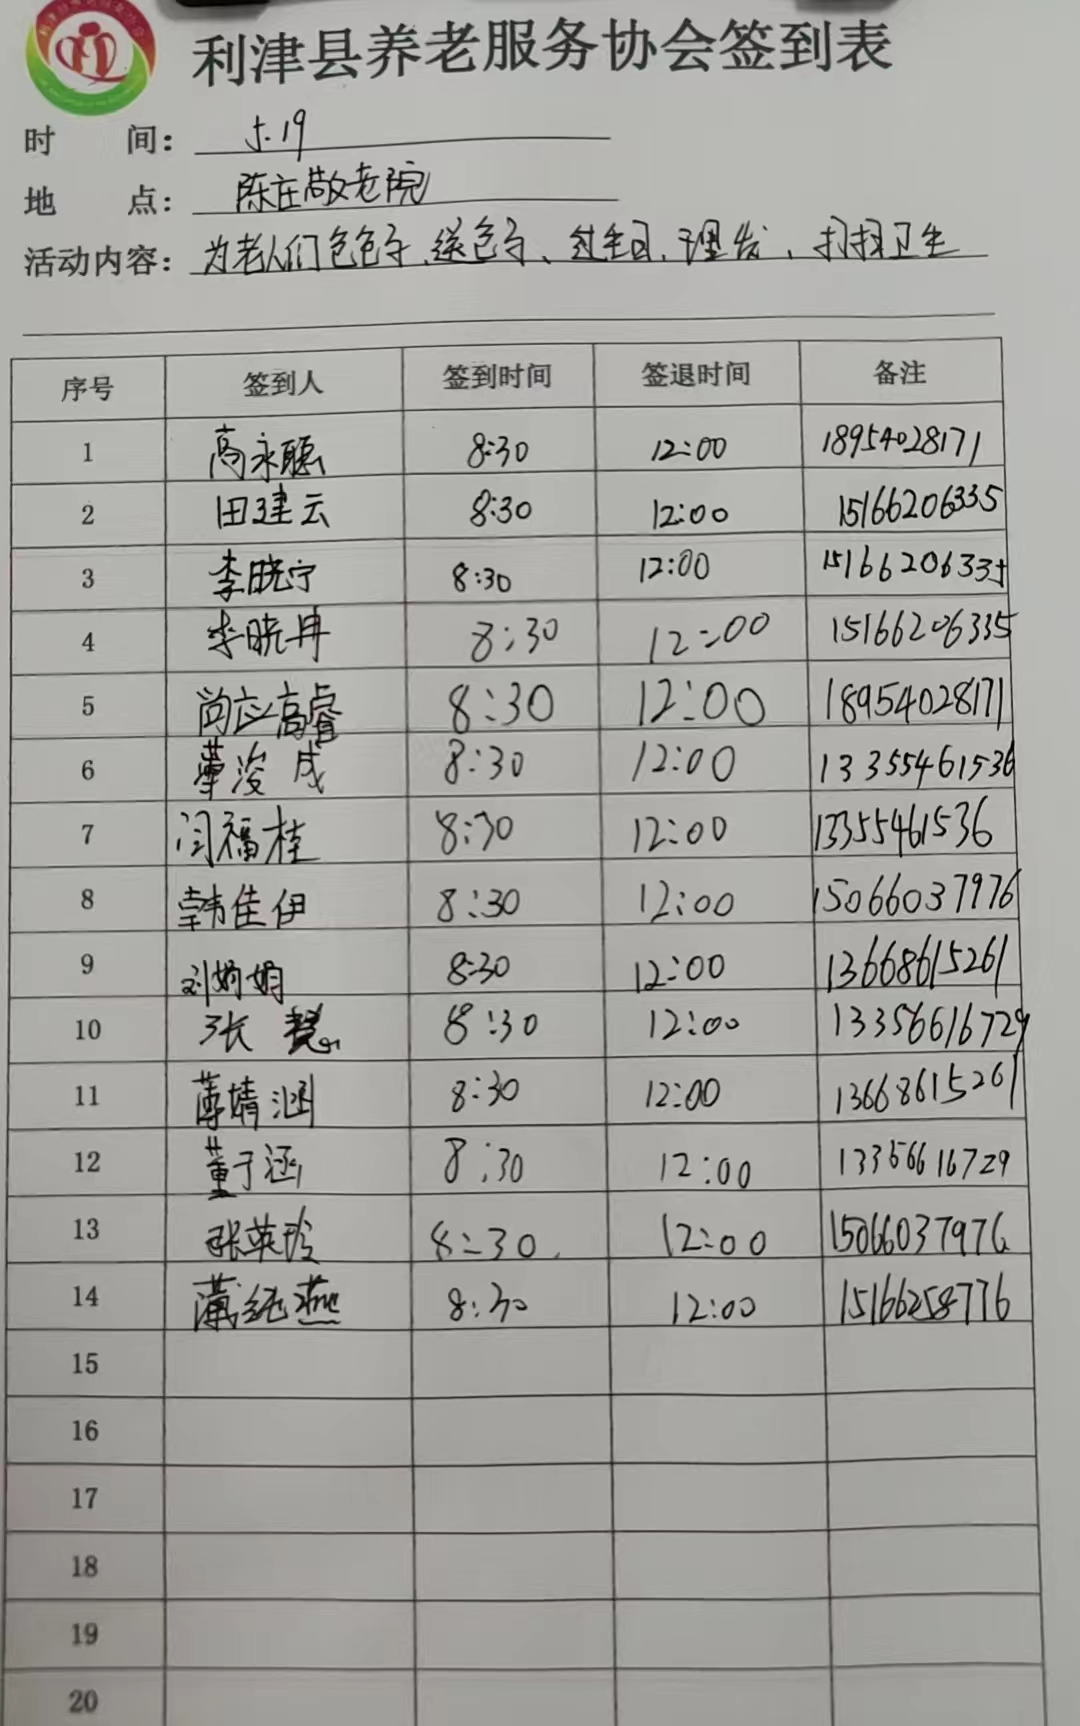 利津县养老服务协会签到表
时 间： 5.19
地 点： 陈庄敬老院
活动内容： 为老人们包包子、送包子、过生日、理发、打扫卫生
序号 签到人 签到时间 签退时间 备注
1 高永聪 8:30 12:00 18954028171
2 田建云 8:30 12:00 15166206335
3 李晓宁 8:30 12:00 15166206335
4 李晓冉 8:30 12:00 15166206335
5 尚应高睿 8:30 12:00 18954028171
6 董浚成 8:30 12:00 13355461536
7 闫福桂 8:30 12:00 13355461536
8 韩佳伊 8:30 12:00 15066037976
9 刘娟娟 8:30 12:00 13668615261
10 张慧 8:30 12:00 13356616729
11 薄婧涵 8:30 12:00 13668615261
12 董于涵 8:30 12:00 13356616729
13 张英玲 8:30 12:00 15066037976
14 燕 8:30 12:00 15166258776
15
16
17
18
19
20